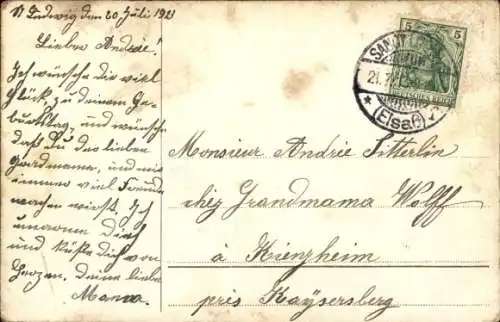 St Ludwig den 20 Juli 19
Lieber Andrée!
Ich wünsche dir viel
Glück, zu deinem Ge-
burtstag, und wünsche
daß Du der lieben
Großmama, und mir
immer viel Freude
machen wirst. Ich
umarme Dich
und küße dich von
Herzen. deine liebe
Mama.
5 5
SANKT LUDWIG
21.7.
(Elsaß)
Monsieur Andrée Sitterlin
chez Grandmama Wolff
à Kienzheim
près Kaysersberg